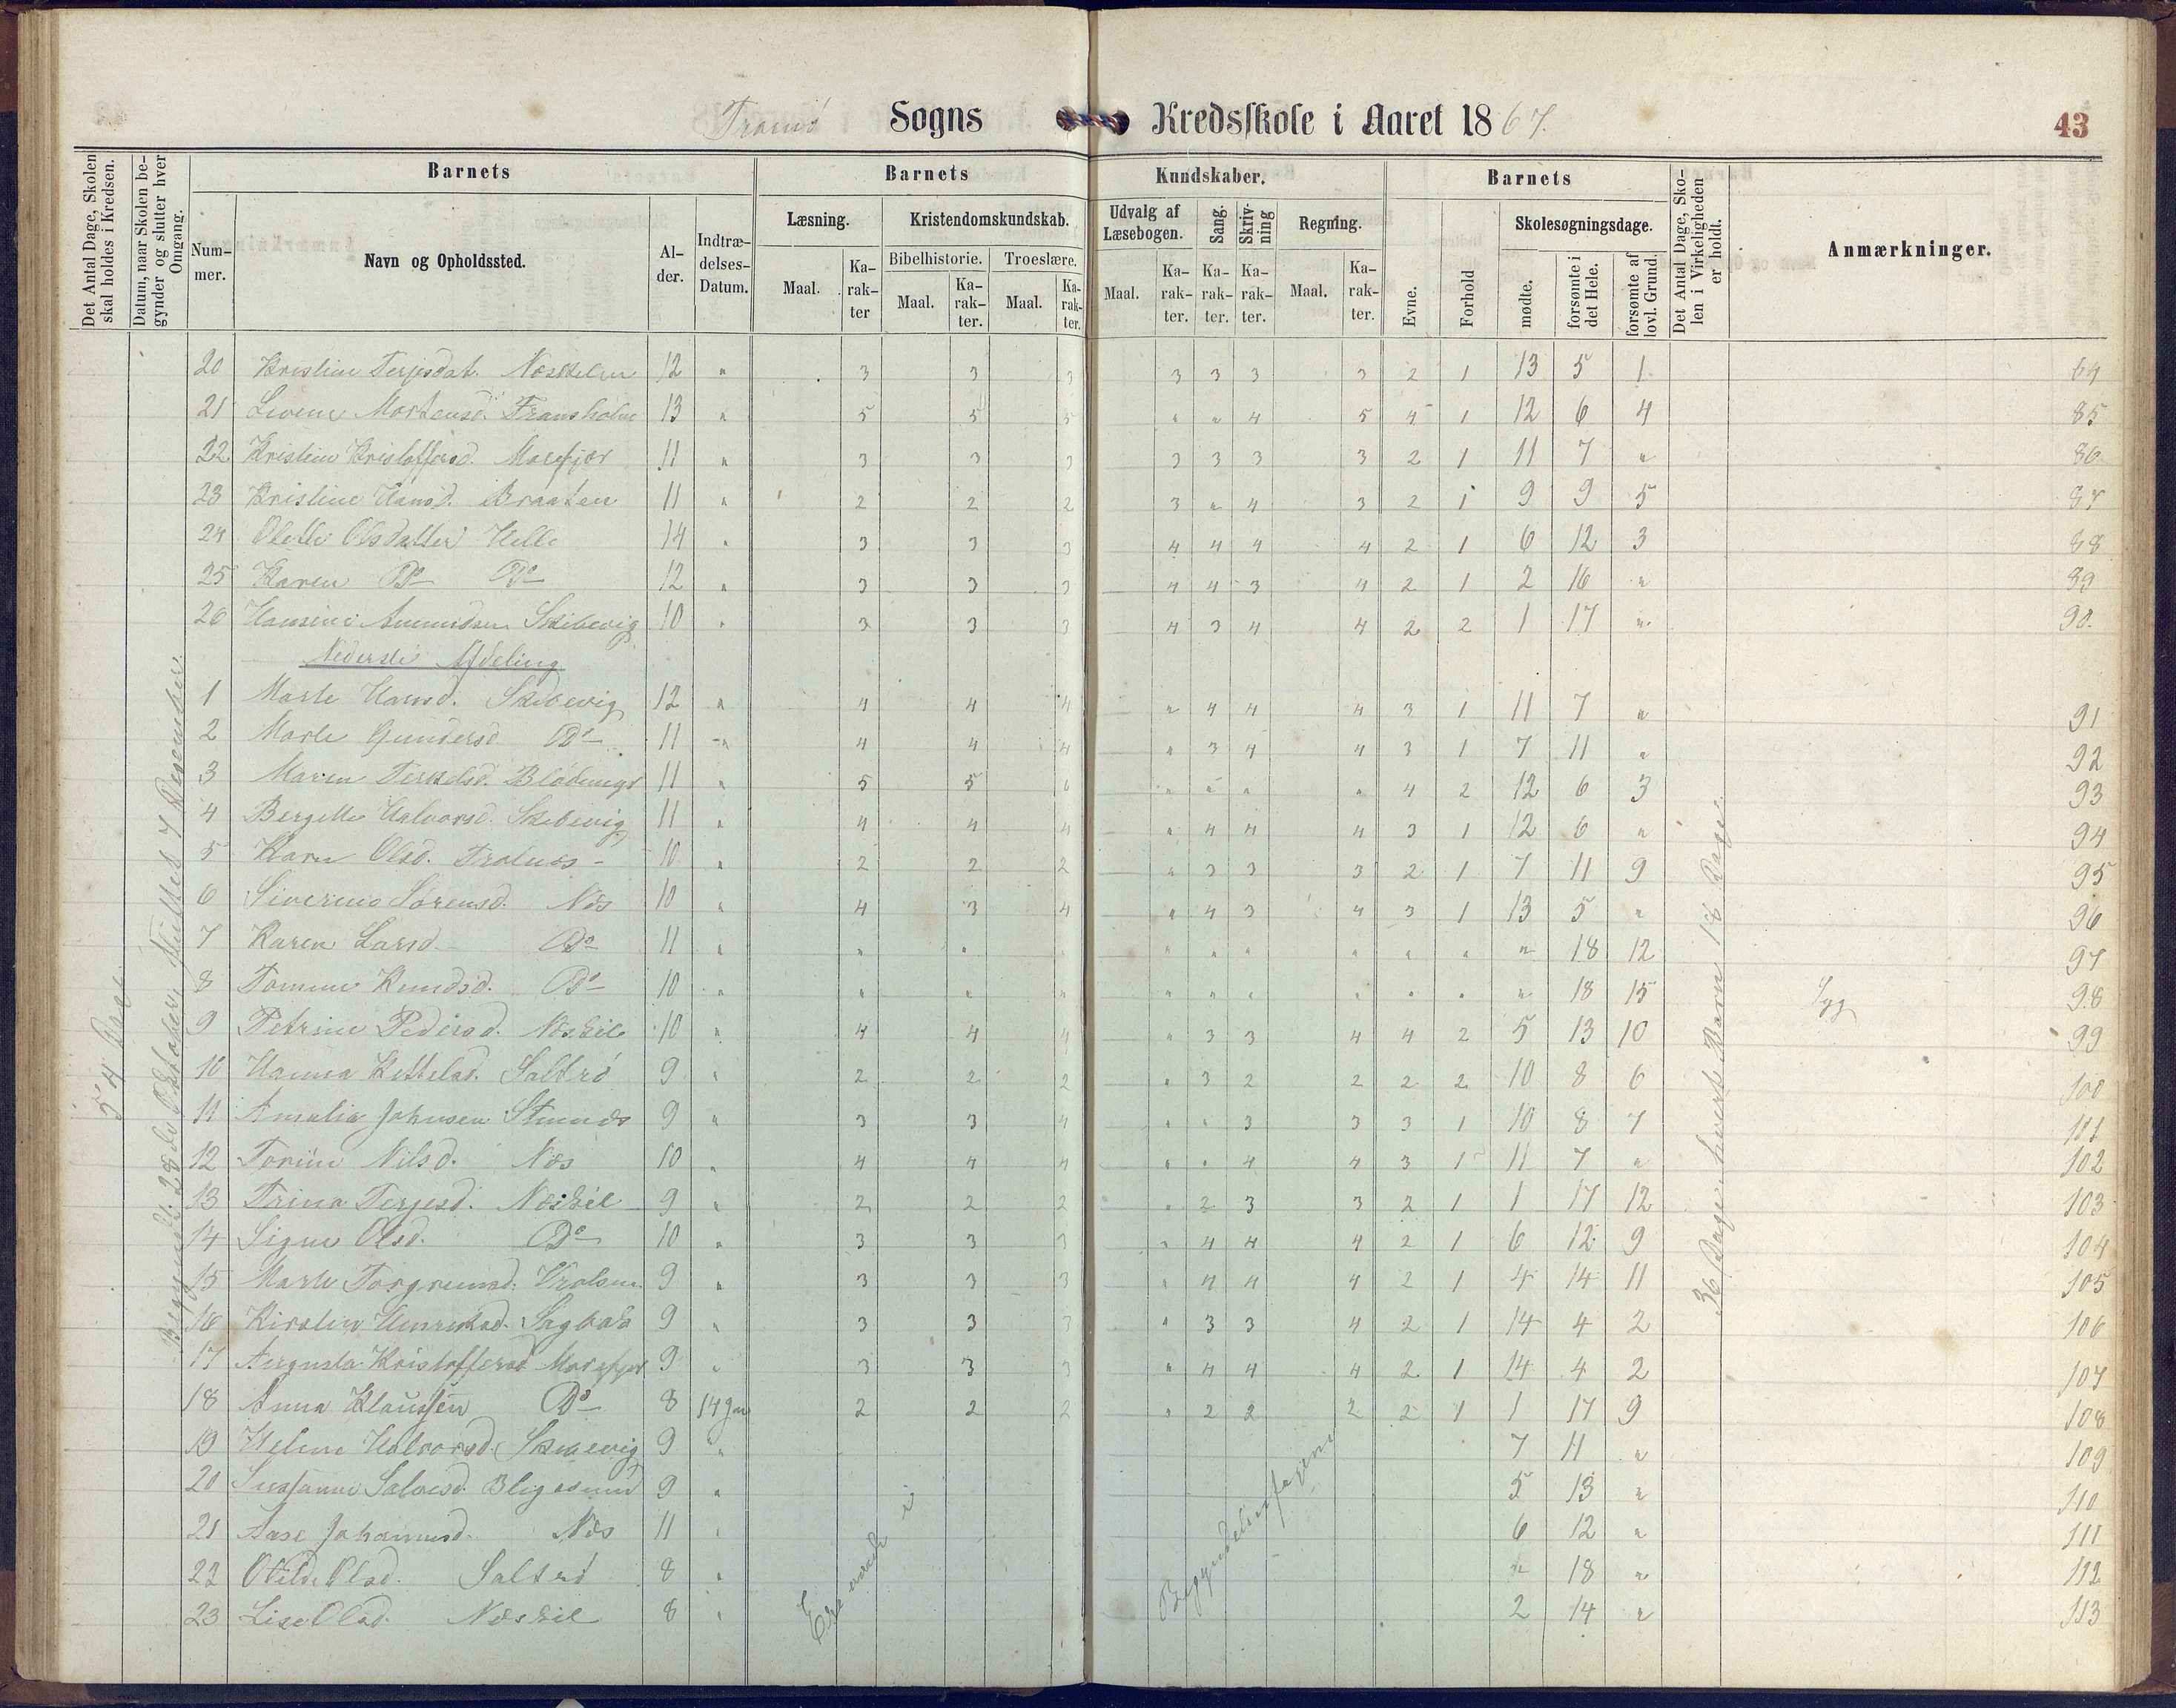 Tromø Sogns Kredsskole i Aaret 1867. 43
Det Antal Dage, Skolen skal holdes i Kredsen.
Datum, naar Skolen begynder og slutter hver Omgang.
Barnets
Nummer.
Navn og Opholdssted.
Alder.
Indtrædelses-Datum.
Barnets Kundskaber.
Læsning.
Maal. Karakter
Kristendomskundskab.
Bibelhistorie. Troeslære.
Maal. Karakter. Maal. Karakter.
Udvalg af Læsebogen.
Maal. Karakter.
Sang. Karakter.
Skrivning Karakter.
Regning.
Maal. Karakter.
Barnets
Evne. Forhold
Skolesøgningsdage.
mødte. forsømte i det Hele. forsømte af lovl. Grund.
Det Antal Dage, Skolen i Virkeligheden er holdt.
Anmærkninger.
54 Dage
Begyndt 28de Oktober, sluttet 7 Desember.
36 Dage, hvert Barn 18 Dage.
20 Kristine Terjesdat. 12 " 3 3 3 3 3 3 3 2 1 13 5 1
21 Mortensd. 13 " 5 5 5 " " 4 5 4 1 12 6 4 85
22 Kristine Kristoffersd. Morefjær 11 " 3 3 3 3 3 3 3 2 1 11 7 " 86
23 Kristine Hansd. Braaten 11 " 2 2 2 3 " 4 3 2 1 9 9 5 87
24 Olette Olsdatter Helle 14 " 3 3 3 4 4 4 4 2 1 6 12 3 88
25 Karen Do Do 12 " 3 3 3 4 4 3 4 2 1 2 16 " 89
26 Hansine Amundsen Skibevig 10 " 3 3 3 4 3 4 4 2 2 1 17 " 90
Nederste Afdeling
1 Marte Hansd. Skibevig 12 " 4 4 4 " 4 4 4 3 1 11 7 " 91
2 Marte Gundersd Do 11 " 4 4 4 " 3 4 4 3 1 7 11 " 92
3 Maren Terkelsd. 11 " 5 5 6 " " " " 4 2 12 6 3 93
4 Bergitte Halvorsd. Skibevig 11 " 4 4 4 " 4 4 4 3 1 12 6 " 94
5 Karn Olsd. 10 " 2 2 2 " 3 3 3 2 1 7 11 9 95
6 Siverine Sørensd. Næs 10 " 4 3 4 " 4 3 4 3 1 13 5 " 96
7 Karen Larsd. Do 11 " " " " " " " " " " " 18 12 97
8 Tomine Knudsd. Do 10 " " " " " " " " " " " 18 15 Syg 98
9 Petrine Pedersd. Næskil 10 " 4 4 4 " 3 3 4 4 2 5 13 10 99
10 Hanna Kettelsd. Saltrø 9 " 2 2 2 " 3 2 2 2 2 10 8 6 100
11 Amalia Johnsen 9 " 3 3 4 " " 3 3 3 1 10 8 7 101
12 Torine Nilsd. Næs 10 " 4 4 4 " " 4 4 3 1 11 7 " 102
13 Trina Terjesd. Næskil 9 " 2 2 2 " 2 3 3 2 1 1 17 12 103
14 Signe Olsd. Do 10 " 3 3 3 " 4 4 4 2 1 6 12 9 104
15 Marte Torgrimsd. 9 " 3 3 3 " 4 4 4 2 1 4 14 11 105
16 Henriksd. 9 " 3 3 3 " 3 3 4 2 1 14 4 2 106
17 Augusta Kristoffersd Morefjær 9 " 3 3 3 " 4 4 4 2 1 14 4 2 107
18 Anna Klausen Do 8 14 Jan 2 2 2 " 2 2 2 2 1 1 17 9 108
19 Helene Halvorsd. Skibevig 9 " 7 11 " 109
20 Susanne Salvesd. 9 " 5 13 " 110
21 Aase Johannesd. Næs 11 " 6 12 " 111
22 Olsd. Saltrø 8 " " 18 " 112
23 Lise Olsd. Næskil 8 " 2 14 " 113
Ere i Begyndelsesfagene